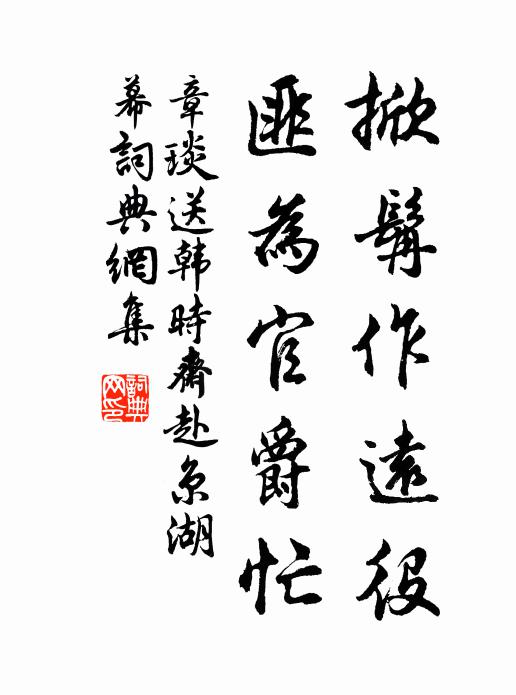 掀髯作遠役
匪為官爵忙
章琰送韩時齋赴京湖
幕詞典網集
詞典网印